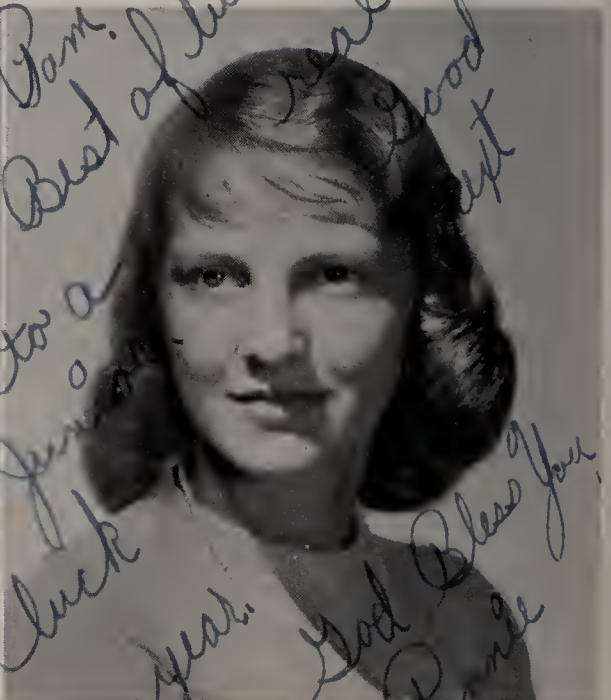 Pam,
Best of
to a real
Junior Good
luck ext
year. God Bless You,